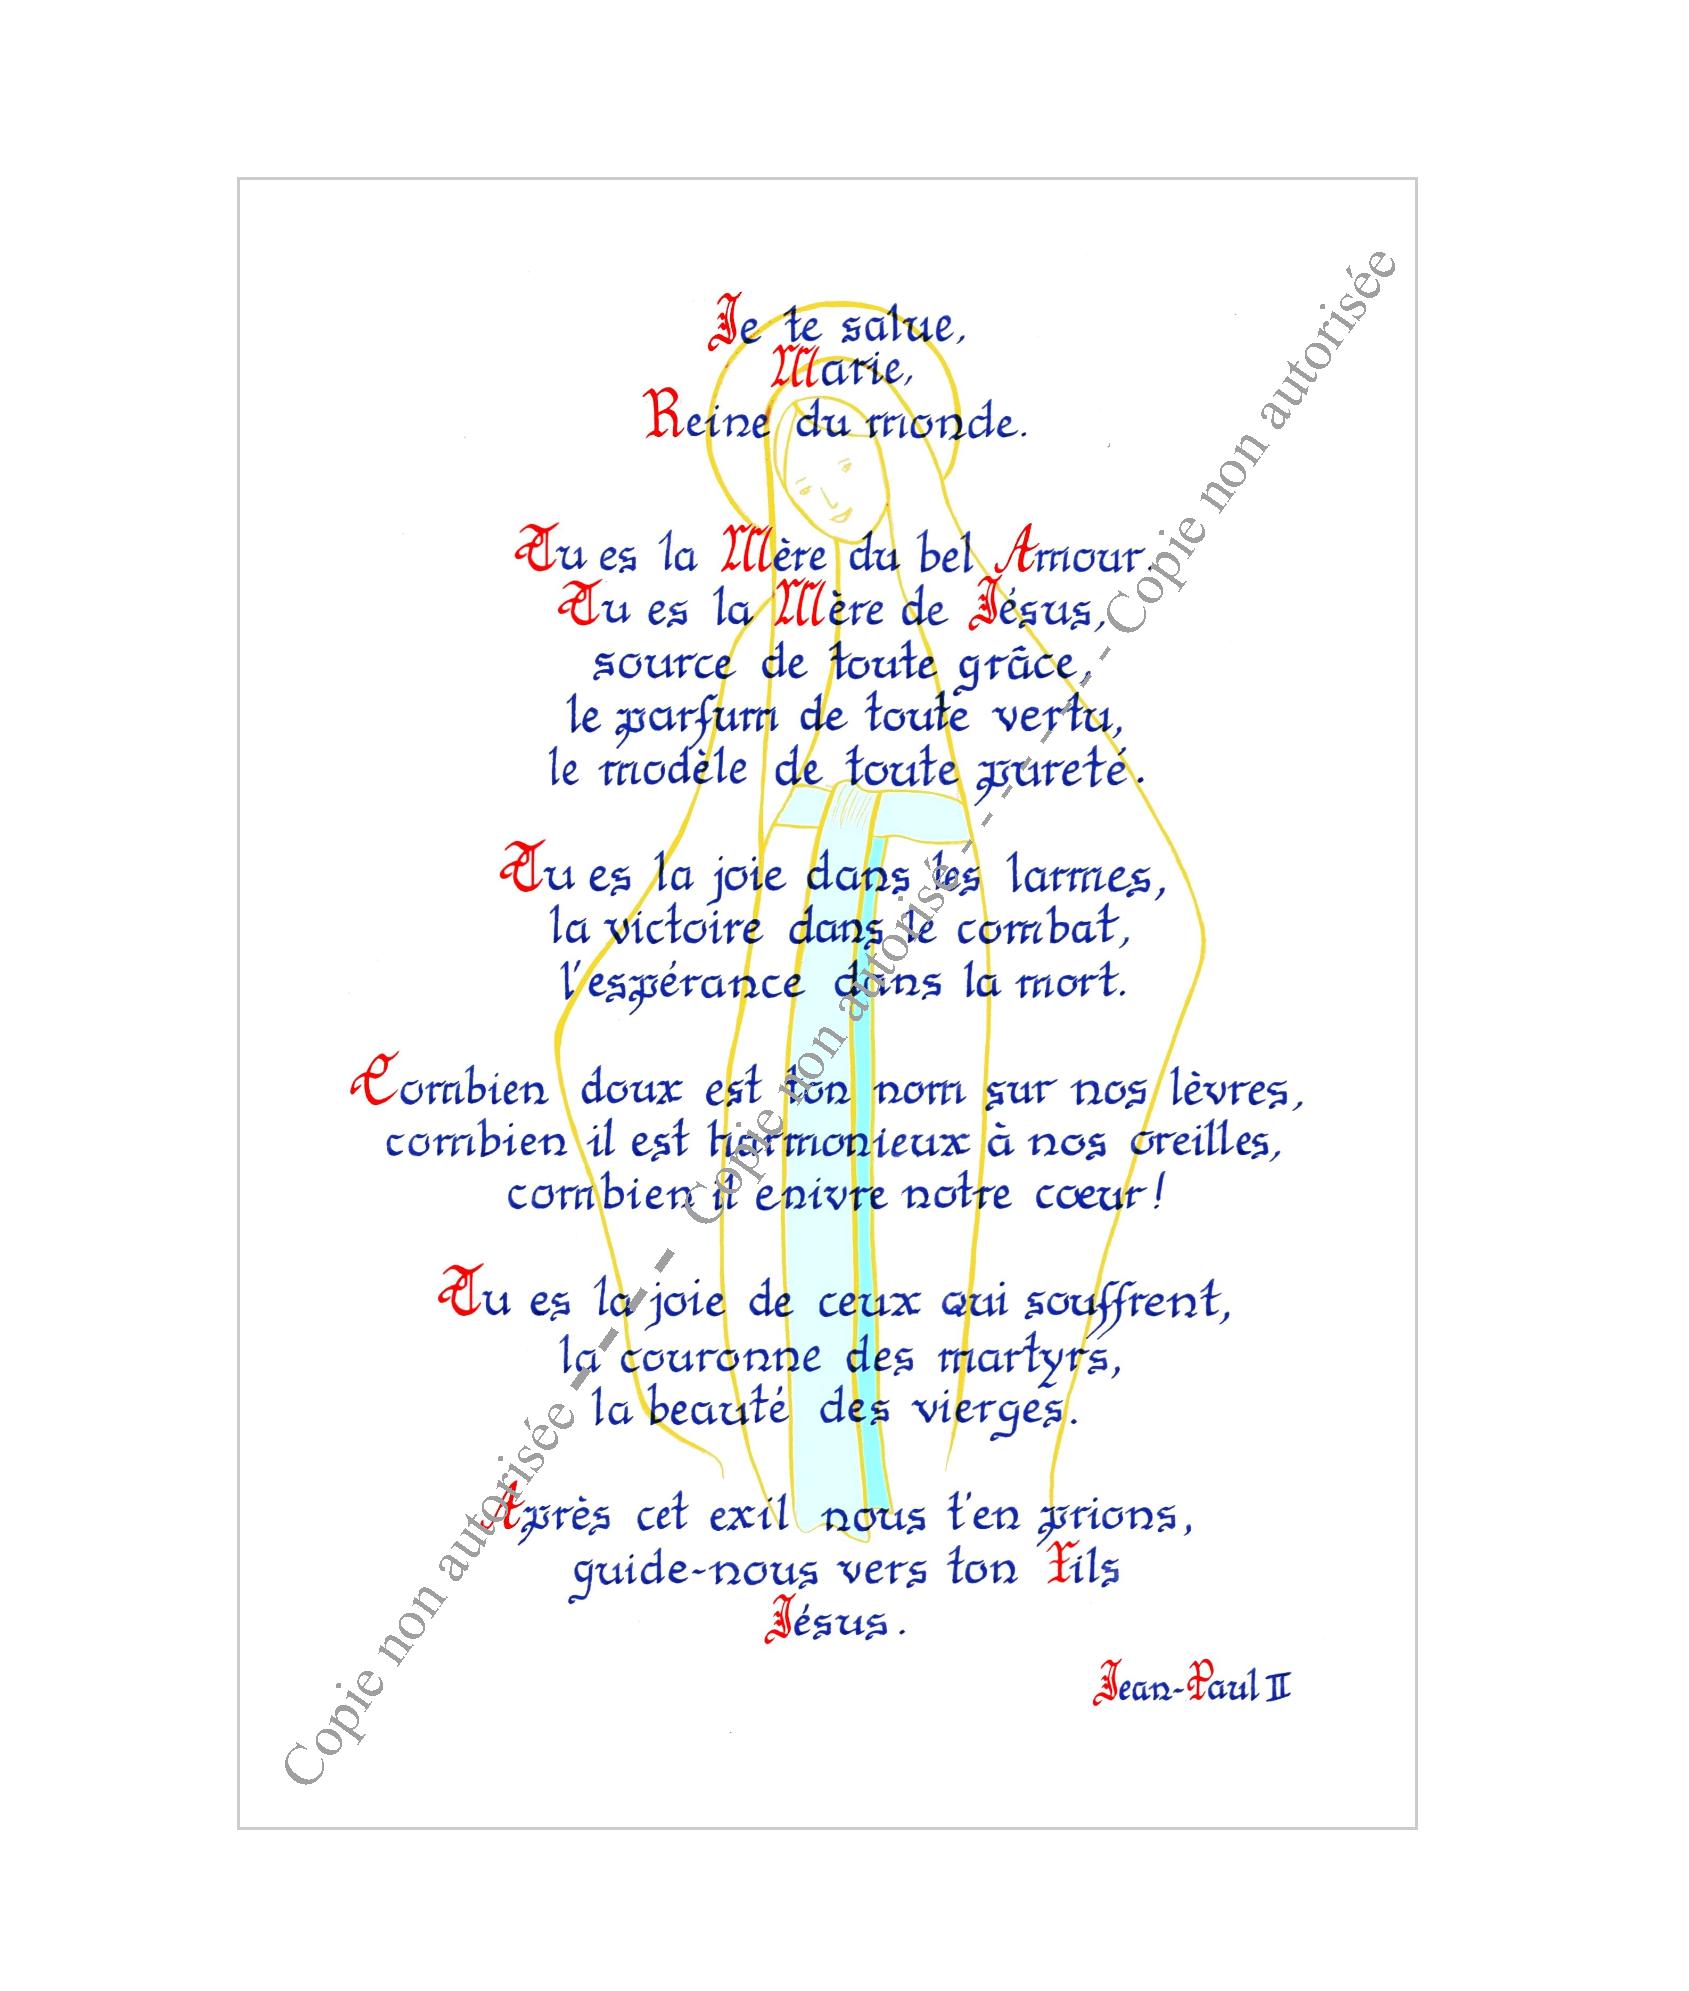 Je te salue,
Marie,
Reine du monde.
Tu es la Mère du bel Amour.
Tu es la Mère de Jésus,
source de toute grâce,
le parfum de toute vertu,
le modèle de toute pureté.
Tu es la joie dans les larmes,
la victoire dans le combat,
l'espérance dans la mort.
Combien doux est ton nom sur nos lèvres,
combien il est harmonieux à nos oreilles,
combien il enivre notre cœur !
Tu es la joie de ceux qui souffrent,
la couronne des martyrs,
la beauté des vierges.
Après cet exil nous t'en prions,
guide-nous vers ton Fils
Jésus.
Jean-Paul II
Copie non autorisée - - - - - Copie non autorisée - - - - - - - Copie non autorisée